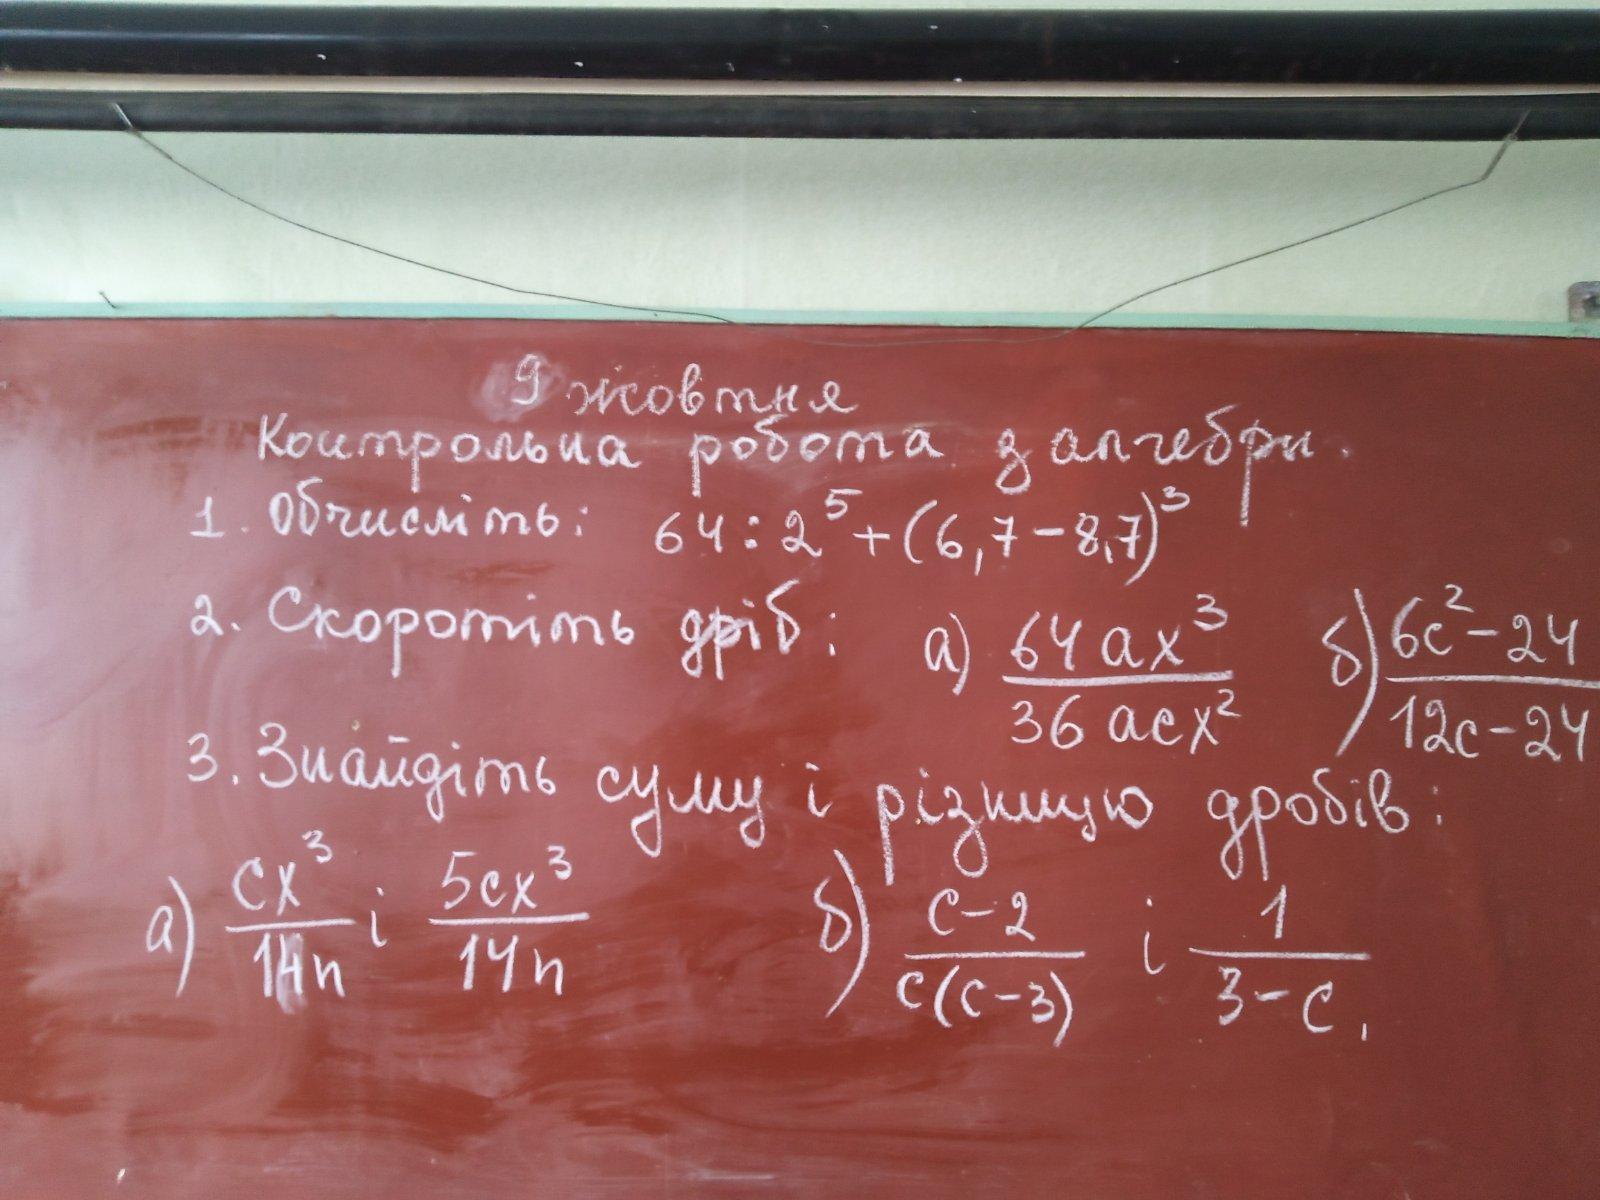 9 жовтня
Контрольна робота з алгебри.
1. Обчисліть: 64 : 2⁵ + (6,7 - 8,7)³
2. Скоротіть дріб: а) 64ax³/36acx² б) 6c² - 24/12c - 24
3. Знайдіть суму і різницю дробів:
а) cx³/14n і 5cx³/14n б) c - 2/c(c - 3) і 1/3 - c.